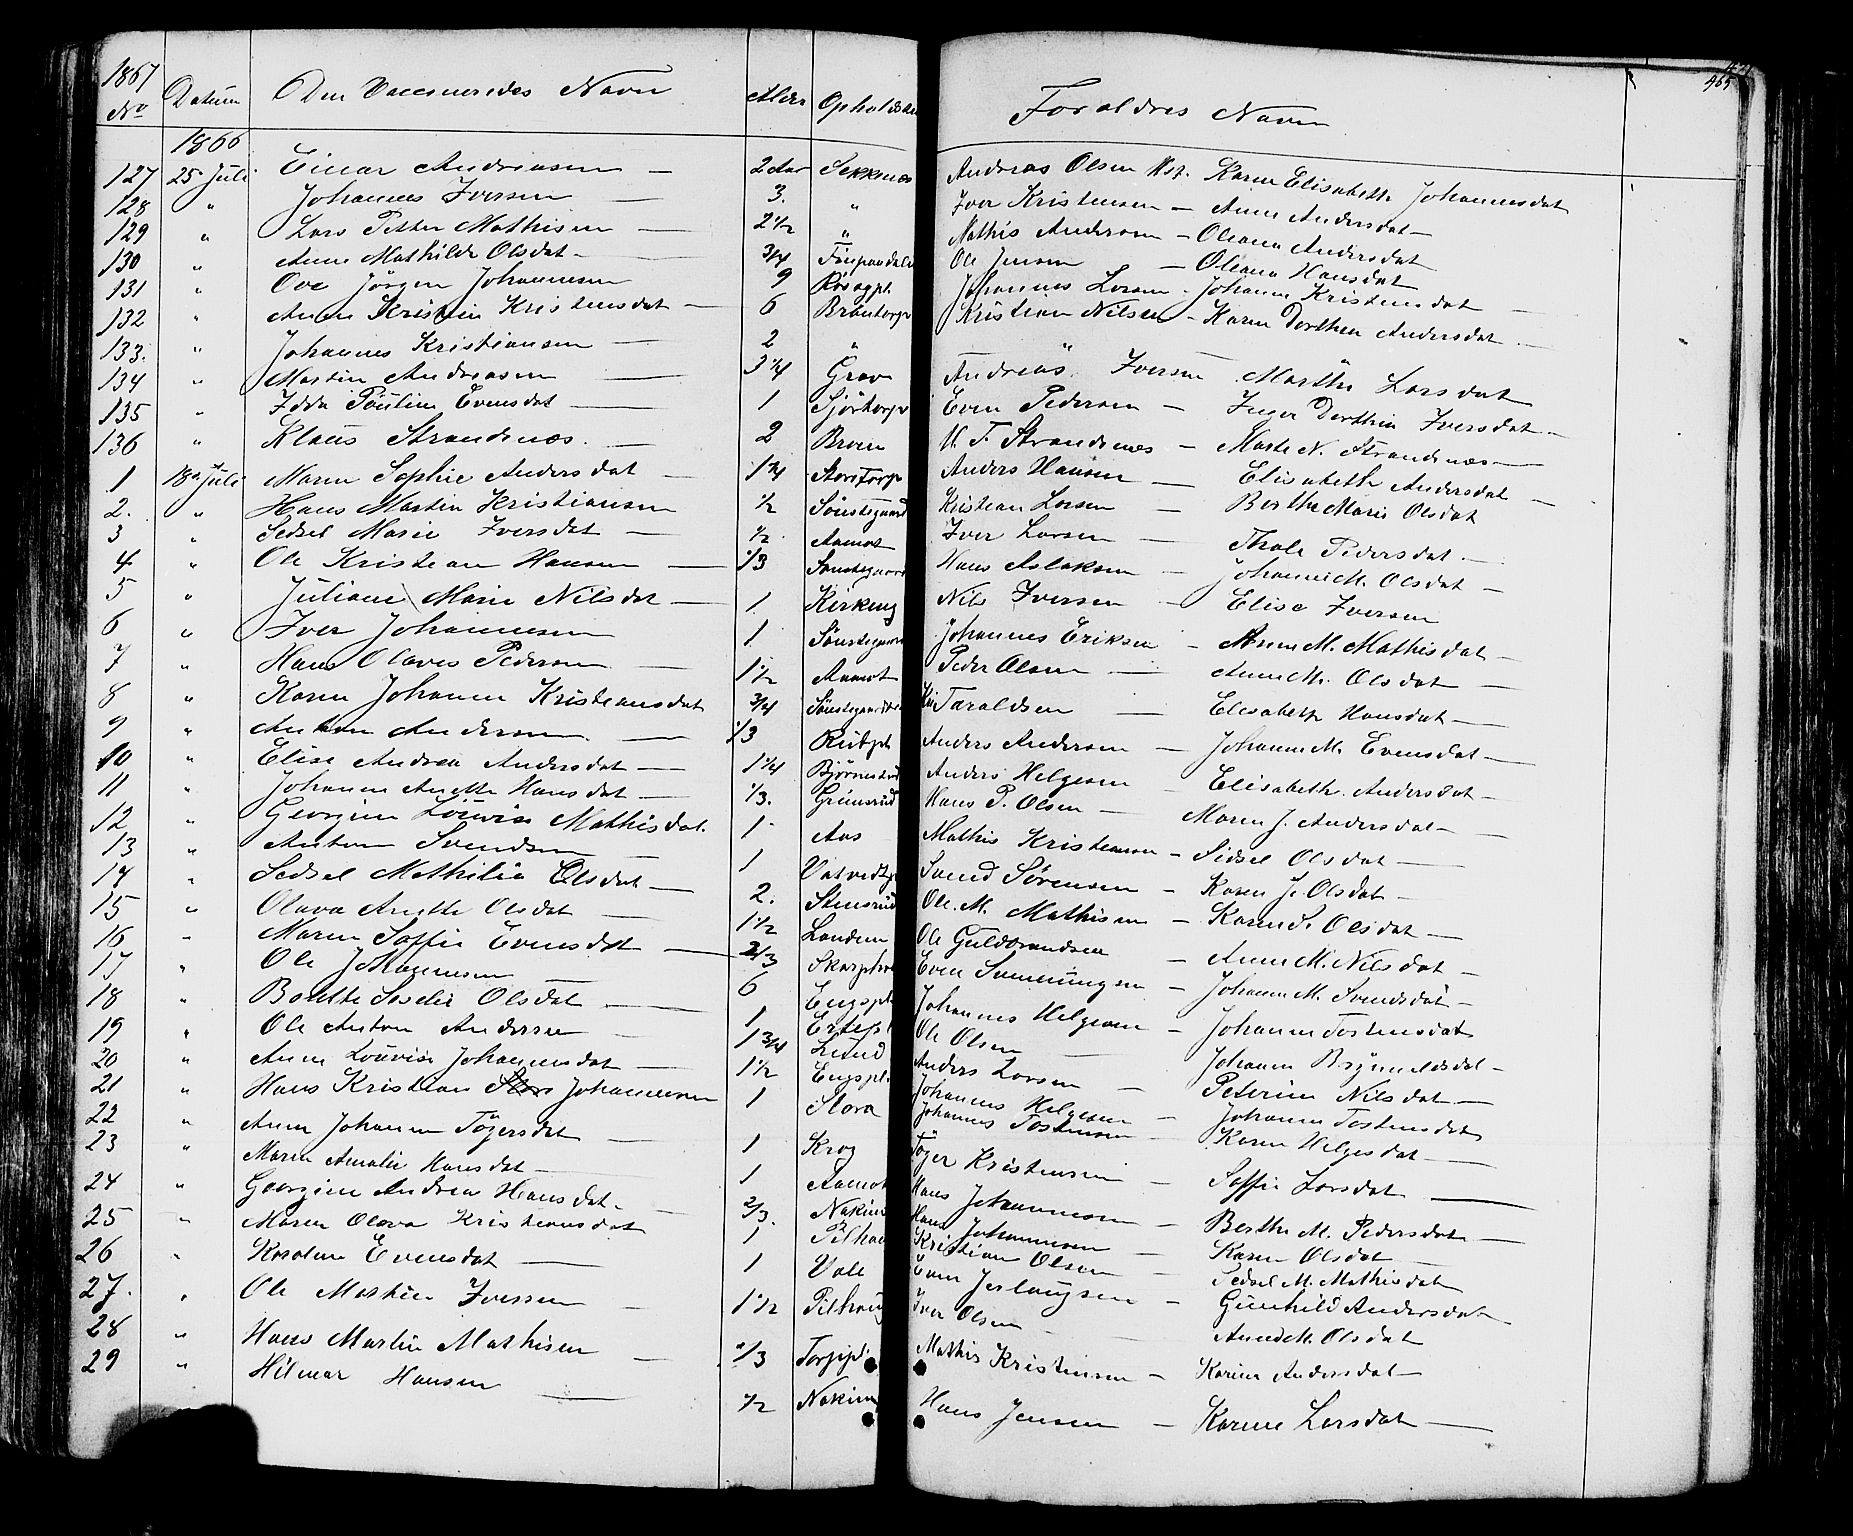 465
1867
No Datum Den Vaccineredes Navn Alder Opholdssted Foraldres Navn
1866
127 25 Juli Einar Andreasen — 2 Aar Sekknæs Andreas Olsen Karen Elisabeth Johannesdat
128 " Johannes Iversen — 3. " Iver Kristensen — Anne Andersdat —
129 " Lars Petter Mathisen — 2 1/2 " Mathis Andersen — Oleana Andersdat
130 " Anne Mathilde Olsdat — 3/4 Ole Jensen — Oleana Hansdat
131 " Ove Jörgen Johannesen 9 Johannes Larsen - Johanne Kristensdat —
132 " Anne Kristin Kristensdat — 6 Kristian Nilsen — Karen Dorthea Andersdat —
133. " Johannes Kristiansen — 2 " "
134 " Martin Andreasen — 3 1/4 Grav Andreas Iversen Marthe Larsdat
135 " Idda Paüline Evensdat — 1 Sjötorp Even Pedersen — Inger Dorthea Iversdat —
136 " Klaus Strandnæs. — 2 Braen Strandnæs — Marte N. Strandnæs —
1 18 Juli Maren Sophie Andersdat — 1 1/4 Anders Hansen — Elisabeth Andersdat —
2. " Hans Martin Kristiansen 1/2 Sönstegaard Kristian Larsen — Berthe Marie Olsdat
3 " Sedsel Marie Iversdat — 1/2 Aamot Iver Larsen — Thale Pedersdat —
4 " Ole Kristian Hansen — 1/3 Sönstegaard Hans Aslaksen — Johanne M. Olsdat —
5 " Juliane Marie Nilsdat — 1. Kirkeng Nils Iversen — Elise Iversen
6 " Iver Johannesen 1 Sönstegaard Johannes Eriksen — Anne M. Mathisdat —
7 " Hans Olaves Pedersen — 1 1/2 Aamot Peder Olsen — Anne M. Olsdat —
8 " Karen Johanne Kristiansdat 3/4 Taraldsen — Elisabeth Hansdat —
9 " Anton Andersen — 1/3 Anders Andersen — Johanne M. Evensdat —
10 " Elise Andrea Andersdat — 1 1/4 Björnstad Anders Helgesen Elisabeth Andersdat —
11 " Johanne Anette Hansdat — 1/3. Grimsrud Hans P. Olsen — Maren J. Andersdat —
12 " Georgine Louise Mathisdat. 1 Aas Mathis Kristiansen — Sidsel Olsdat —
13 " Anton Svendsen — 1 Svend Sörensen — Karen J. Olsdat —
14 " Sedsel Mathilia Olsdat — 2. Stensrud Ole M. Mathisen — Karen S. Olsdat —
15 " Olava Anette Olsdat — 1 1/2 Landem Ole Guldbrandsen — Anne M. Nilsdat —
16 " Maren Soffie Evensdat — 2/3 Even — Johanne M. Svendsdat —
17 " Ole Johannesen — 6 Engspl Johannes Helgesen — Johanne Tostensdat
18 " Olsdat — 1 Ole Olsen — Johanne
19 " Ole Anton Andersen — 1 3/4 Lund Anders Larsen — Peterine Nilsdat —
20 " Anne Louvise Johannesdat — 1 1/2 Engspl. Johannes Helgesen — Johanne Tostensdat
21 " Hans Kristian Johannesen 1 Stora Johannes Tostensen — Karen Helgesdat —
22 " Anne Johanne Tögersdat — 1 Krog Töger Kristensen — Soffie Larsdat —
23 " Maren Amalie Hansdat — 1 Aamot Hans Johannesen — Berthe M. Pedersdat —
24 " Georgine Andrea Hansdat — 2/3. Hans Johannesen — Karen Olsdat —
25 " Maren Olava Kristiansdat 1 Pilhaug Kristian Olsen — Sedsel M. Mathisdat
26 " Karoline Evensdat — 1 Vale Even Jerlaugsen — Gunhild Andersdat
27. " Ole Martin Iversen — 1 1/2 Pilhaug Iver Olsen — Anne M. Olsdat
28 " Hans Martin Mathisen — 1/3 Torppl. Mathis Kristiansen — Karine Andersdat —
29 " Hilmar Hansen — 1/2 Hans Jensen — Karine Larsdat —